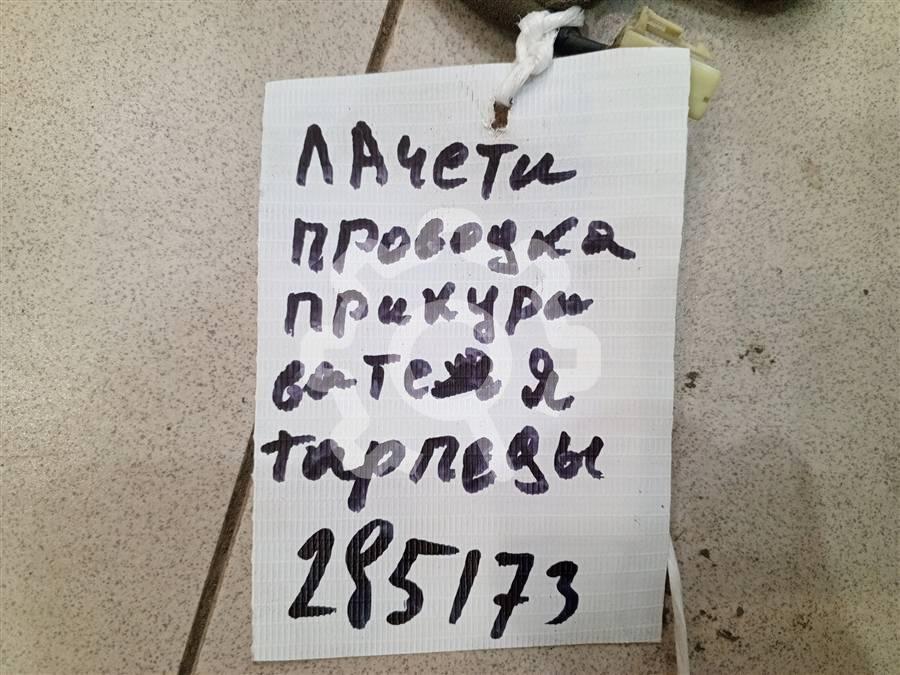 ЛАчети
проводка
прикури
вателя
тарпеды
285173